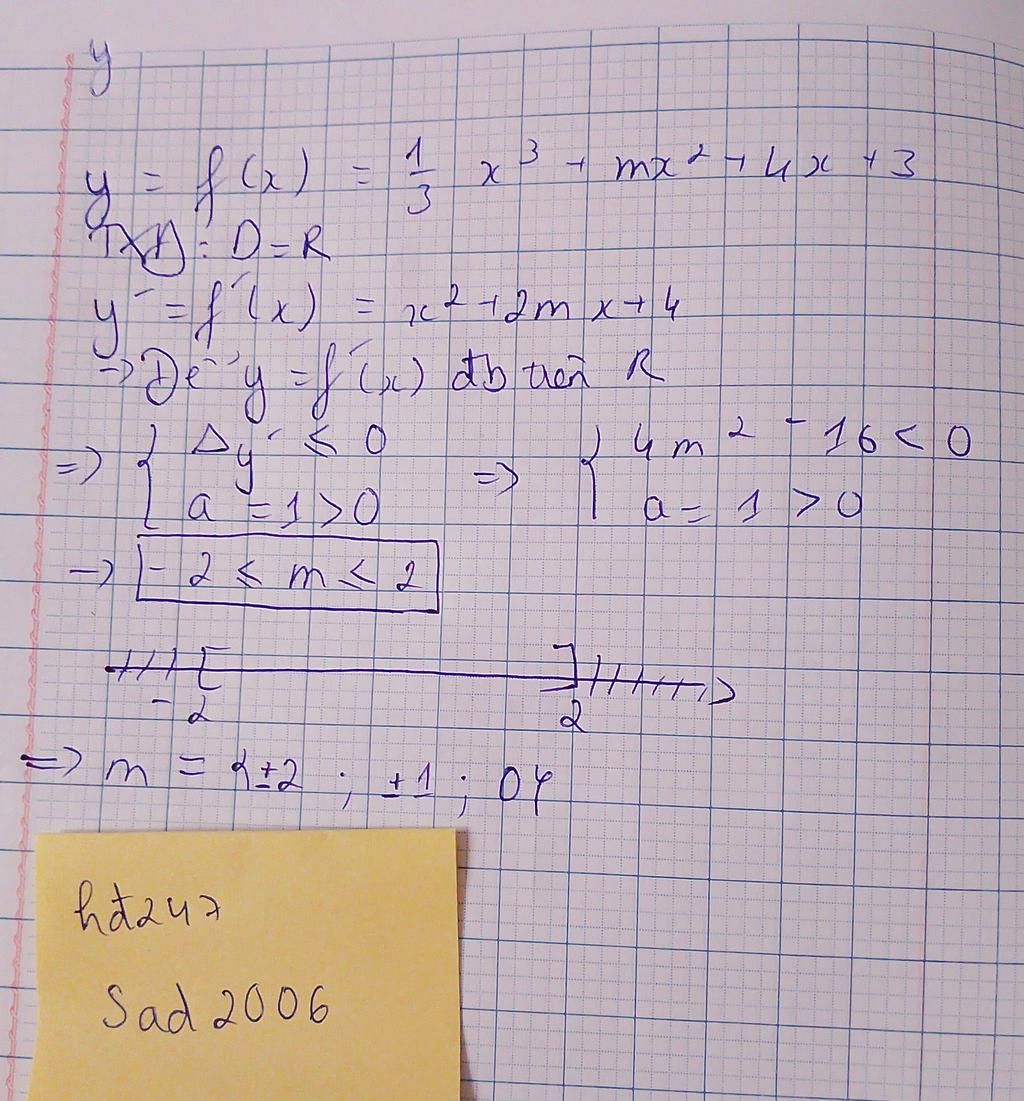 y
y = f(x) = 1/3 x³ + mx² + 4x + 3
TXĐ: D = R
y' = f'(x) = x² + 2mx + 4
→ Để y = f(x) đb trên R
=> { Δy' ≤ 0 => { 4m² - 16 < 0
a = 1 > 0 a = 1 > 0
→ -2 ≤ m ≤ 2
-2 2
=> m = {±2 ; ±1 ; 0}
hđ247
Sad 2006